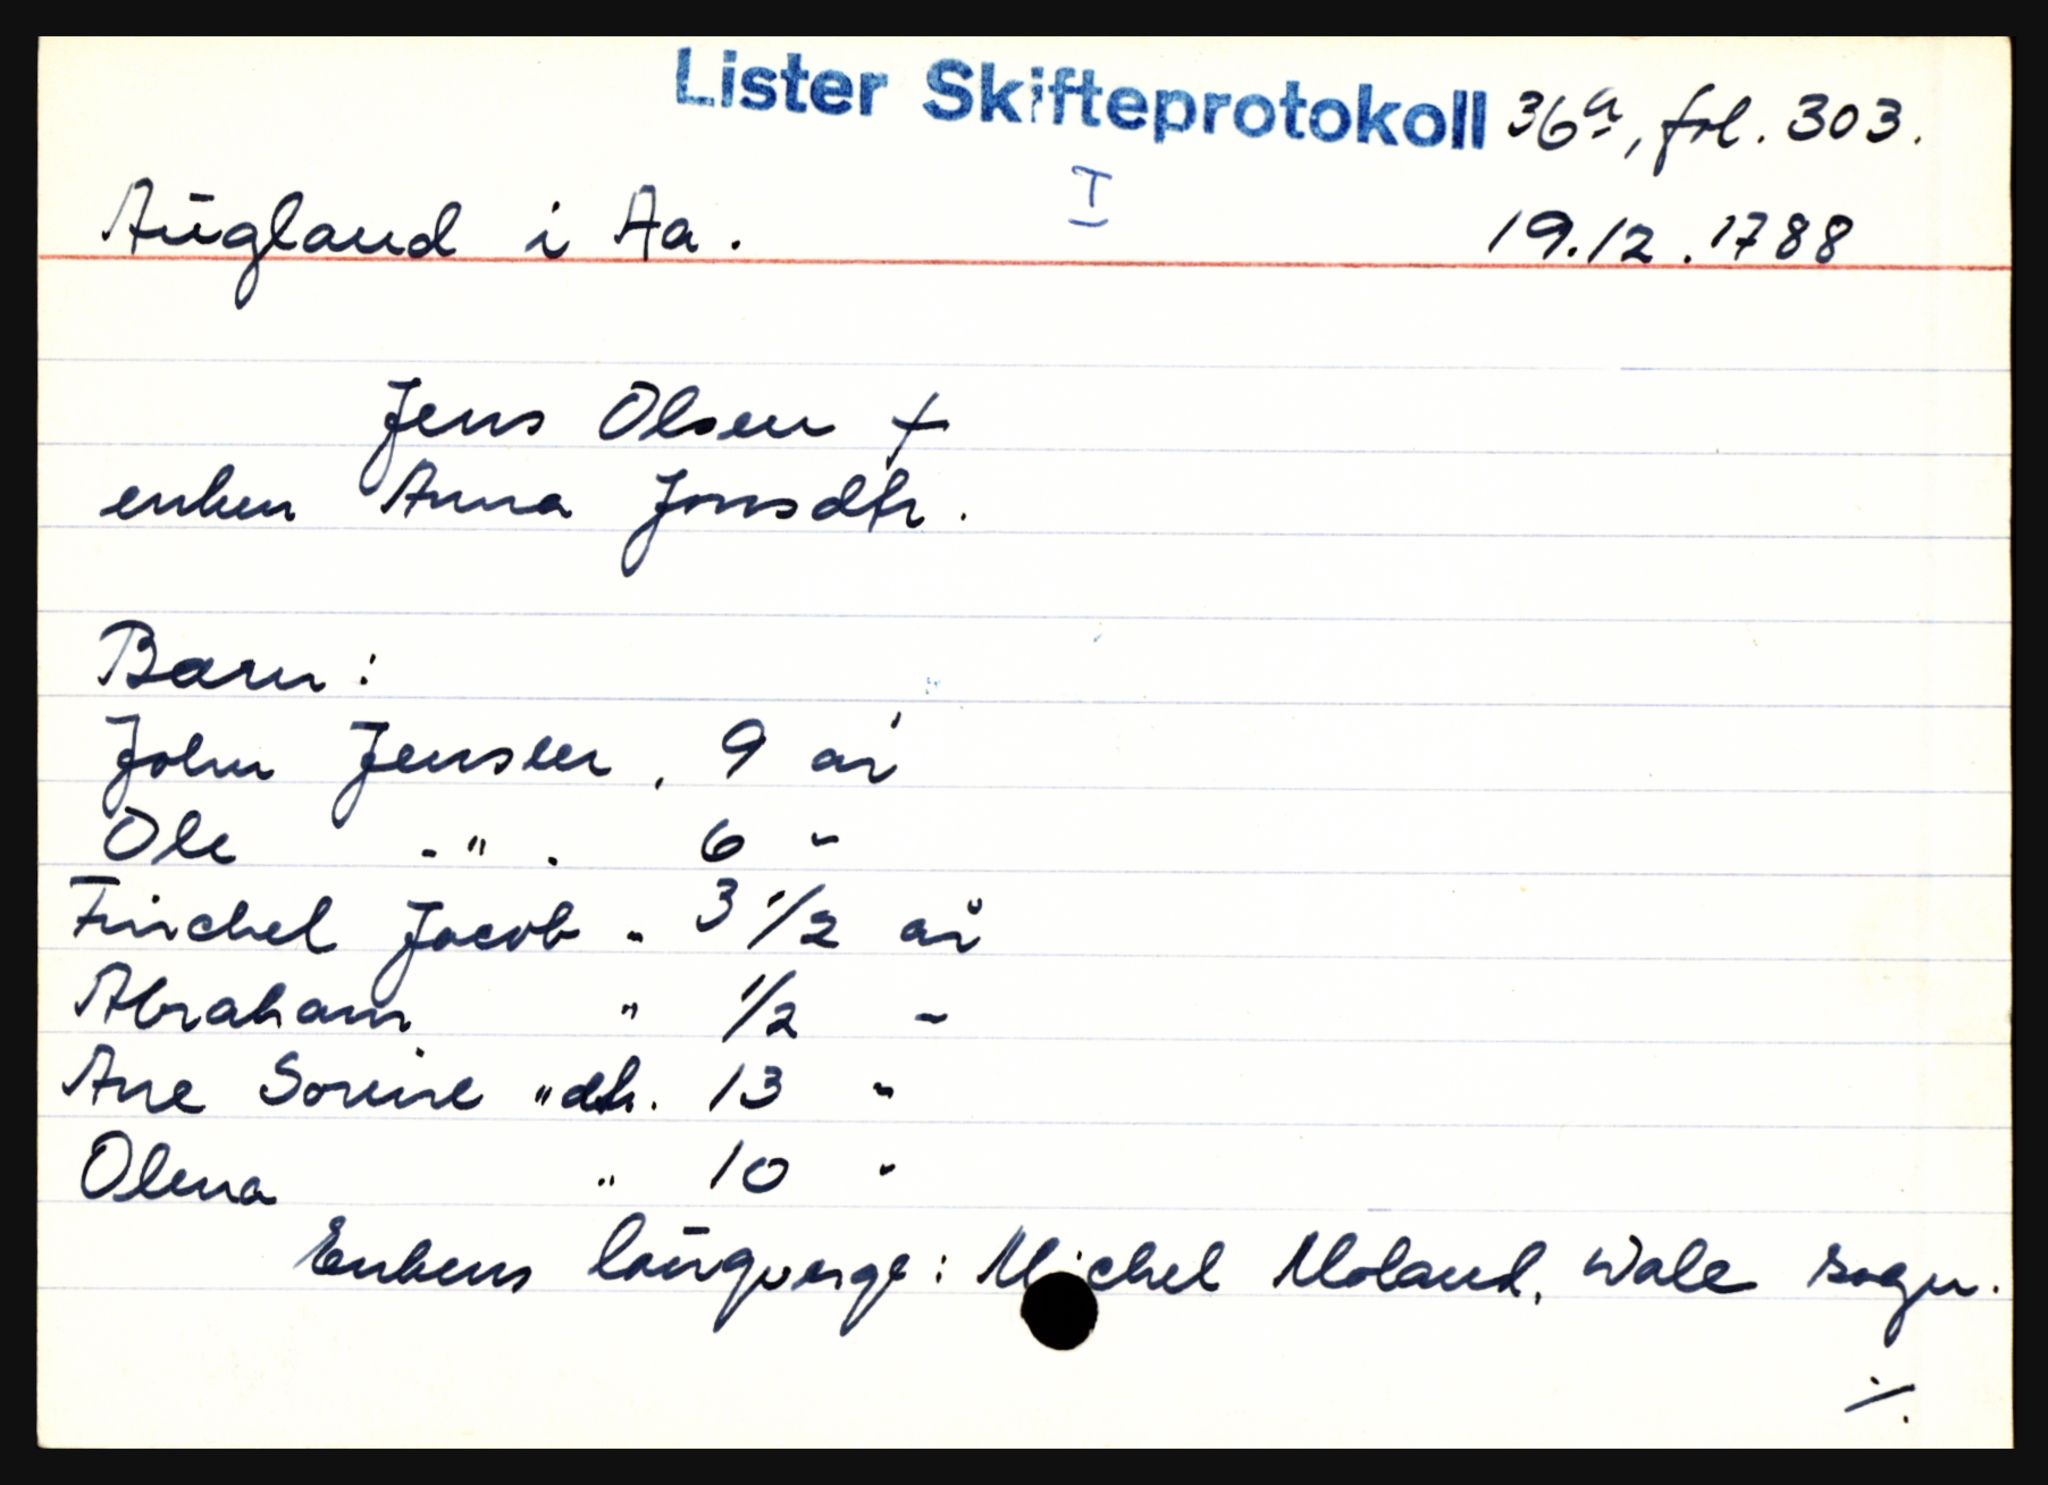 Lister Skifteprotokoll 36a, fol. 303.
I
Augland i Aa. 19.12.1788
Jens Olsen †
enken Anna Jonsdtr.
Barn:
John Jensen, 9 år
Ole - " - 6 "
Finchel Jacob " 3 1/2 år
Abraham " 1/2 "
Ane Sorine " dtr. 13 "
Olena " 10 "
Enkens laugverge: Michel Moland, Wale sogn.
./.